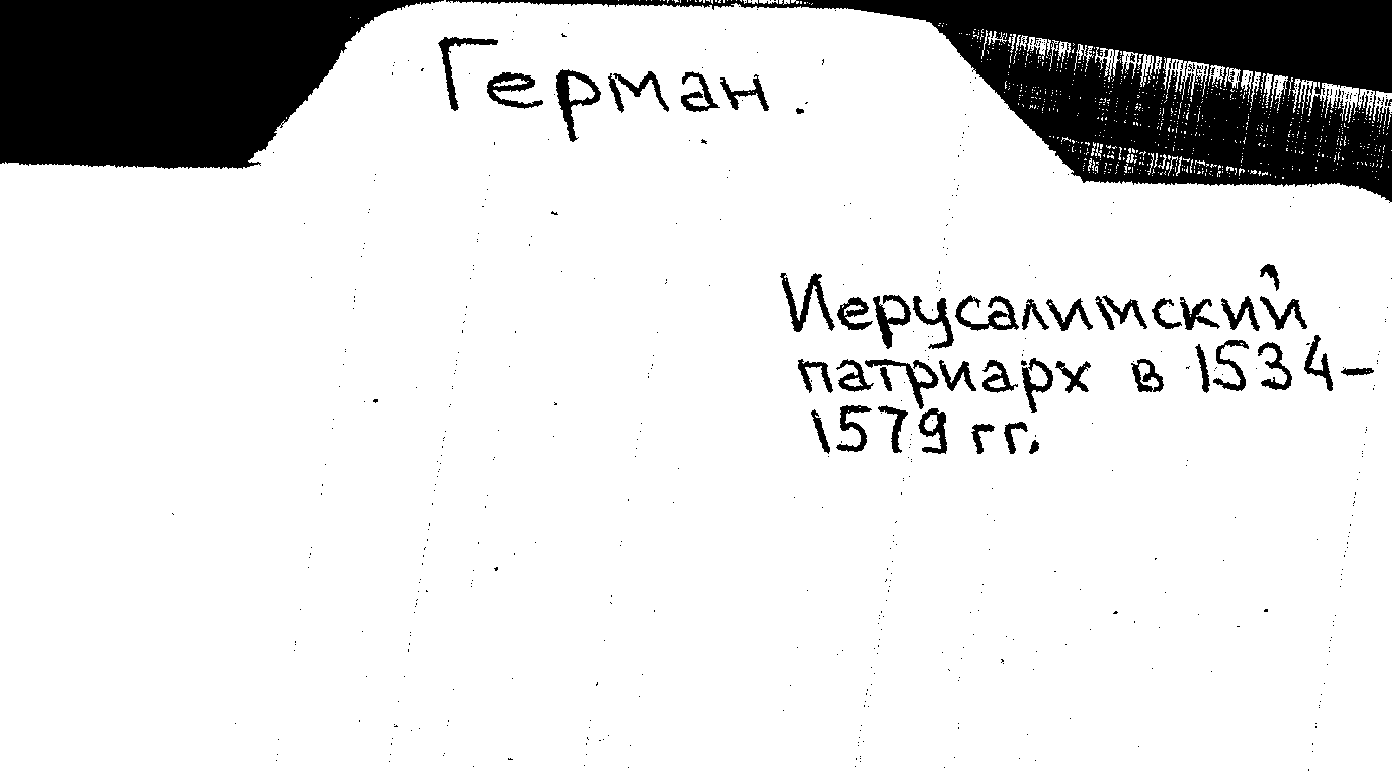 Герман.
Иерусалимский
патриарх в 1534-
1579 гг.